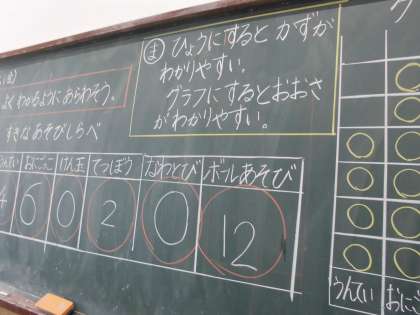 よくわかるように あらわそう。
すきなあそびしらべ
ま ひょうにすると かずが
わかりやすい。
グラフにするとおおさ
がわかりやすい。
おにごっこ けん玉 てつぼう なわとび ボールあそび
4 6 0 2 0 12
うんてい おにご